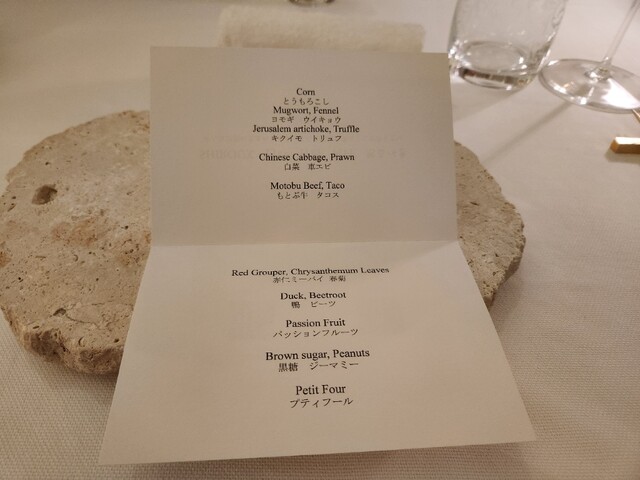 Corn
とうもろこし
Mugwort, Fennel
ヨモギ　ウイキョウ
Jerusalem artichoke, Truffle
キクイモ　トリュフ
Chinese Cabbage, Prawn
白菜　車エビ
Motobu Beef, Taco
もとぶ牛　タコス
Red Grouper, Chrysanthemum Leaves
赤仁ミーバイ　春菊
Duck, Beetroot
鴨　ビーツ
Passion Fruit
パッションフルーツ
Brown sugar, Peanuts
黒糖　ジーマミー
Petit Four
プティフール